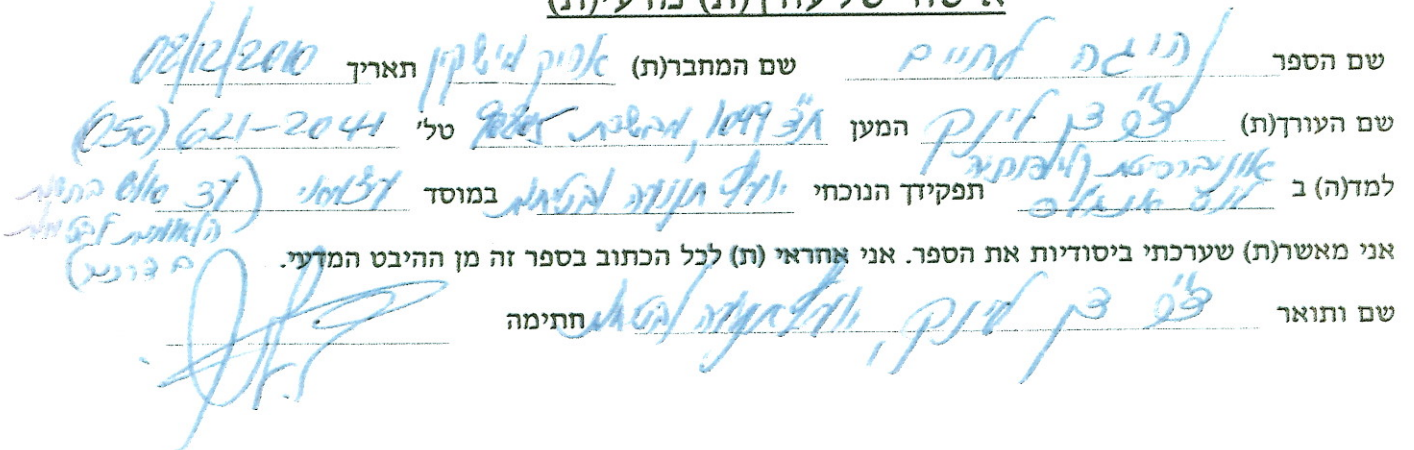 אישור של עורך(ת) מדעי(ת)
שם הספר נהיגה לחיים שם המחבר(ת) אריק מישקין תאריך 02/12/2010
שם העורך(ת) ד"ר דן לינק המען ת"ד 1049, מבשרת טל' (050) 621-2041
למד(ה) ב אוניברסיטת קליפורניה לוס אנג'לס תפקידך הנוכחי יועץ תנועה ובטיחות במוסד עצמאי (עד
הלאומית לבטיחות
בדרכים)
אני מאשר(ת) שערכתי ביסודיות את הספר. אני אחראי (ת) לכל הכתוב בספר זה מן ההיבט המדעי.
שם ותואר ד"ר דן לינק, יועץ תנועה ובטיחות חתימה